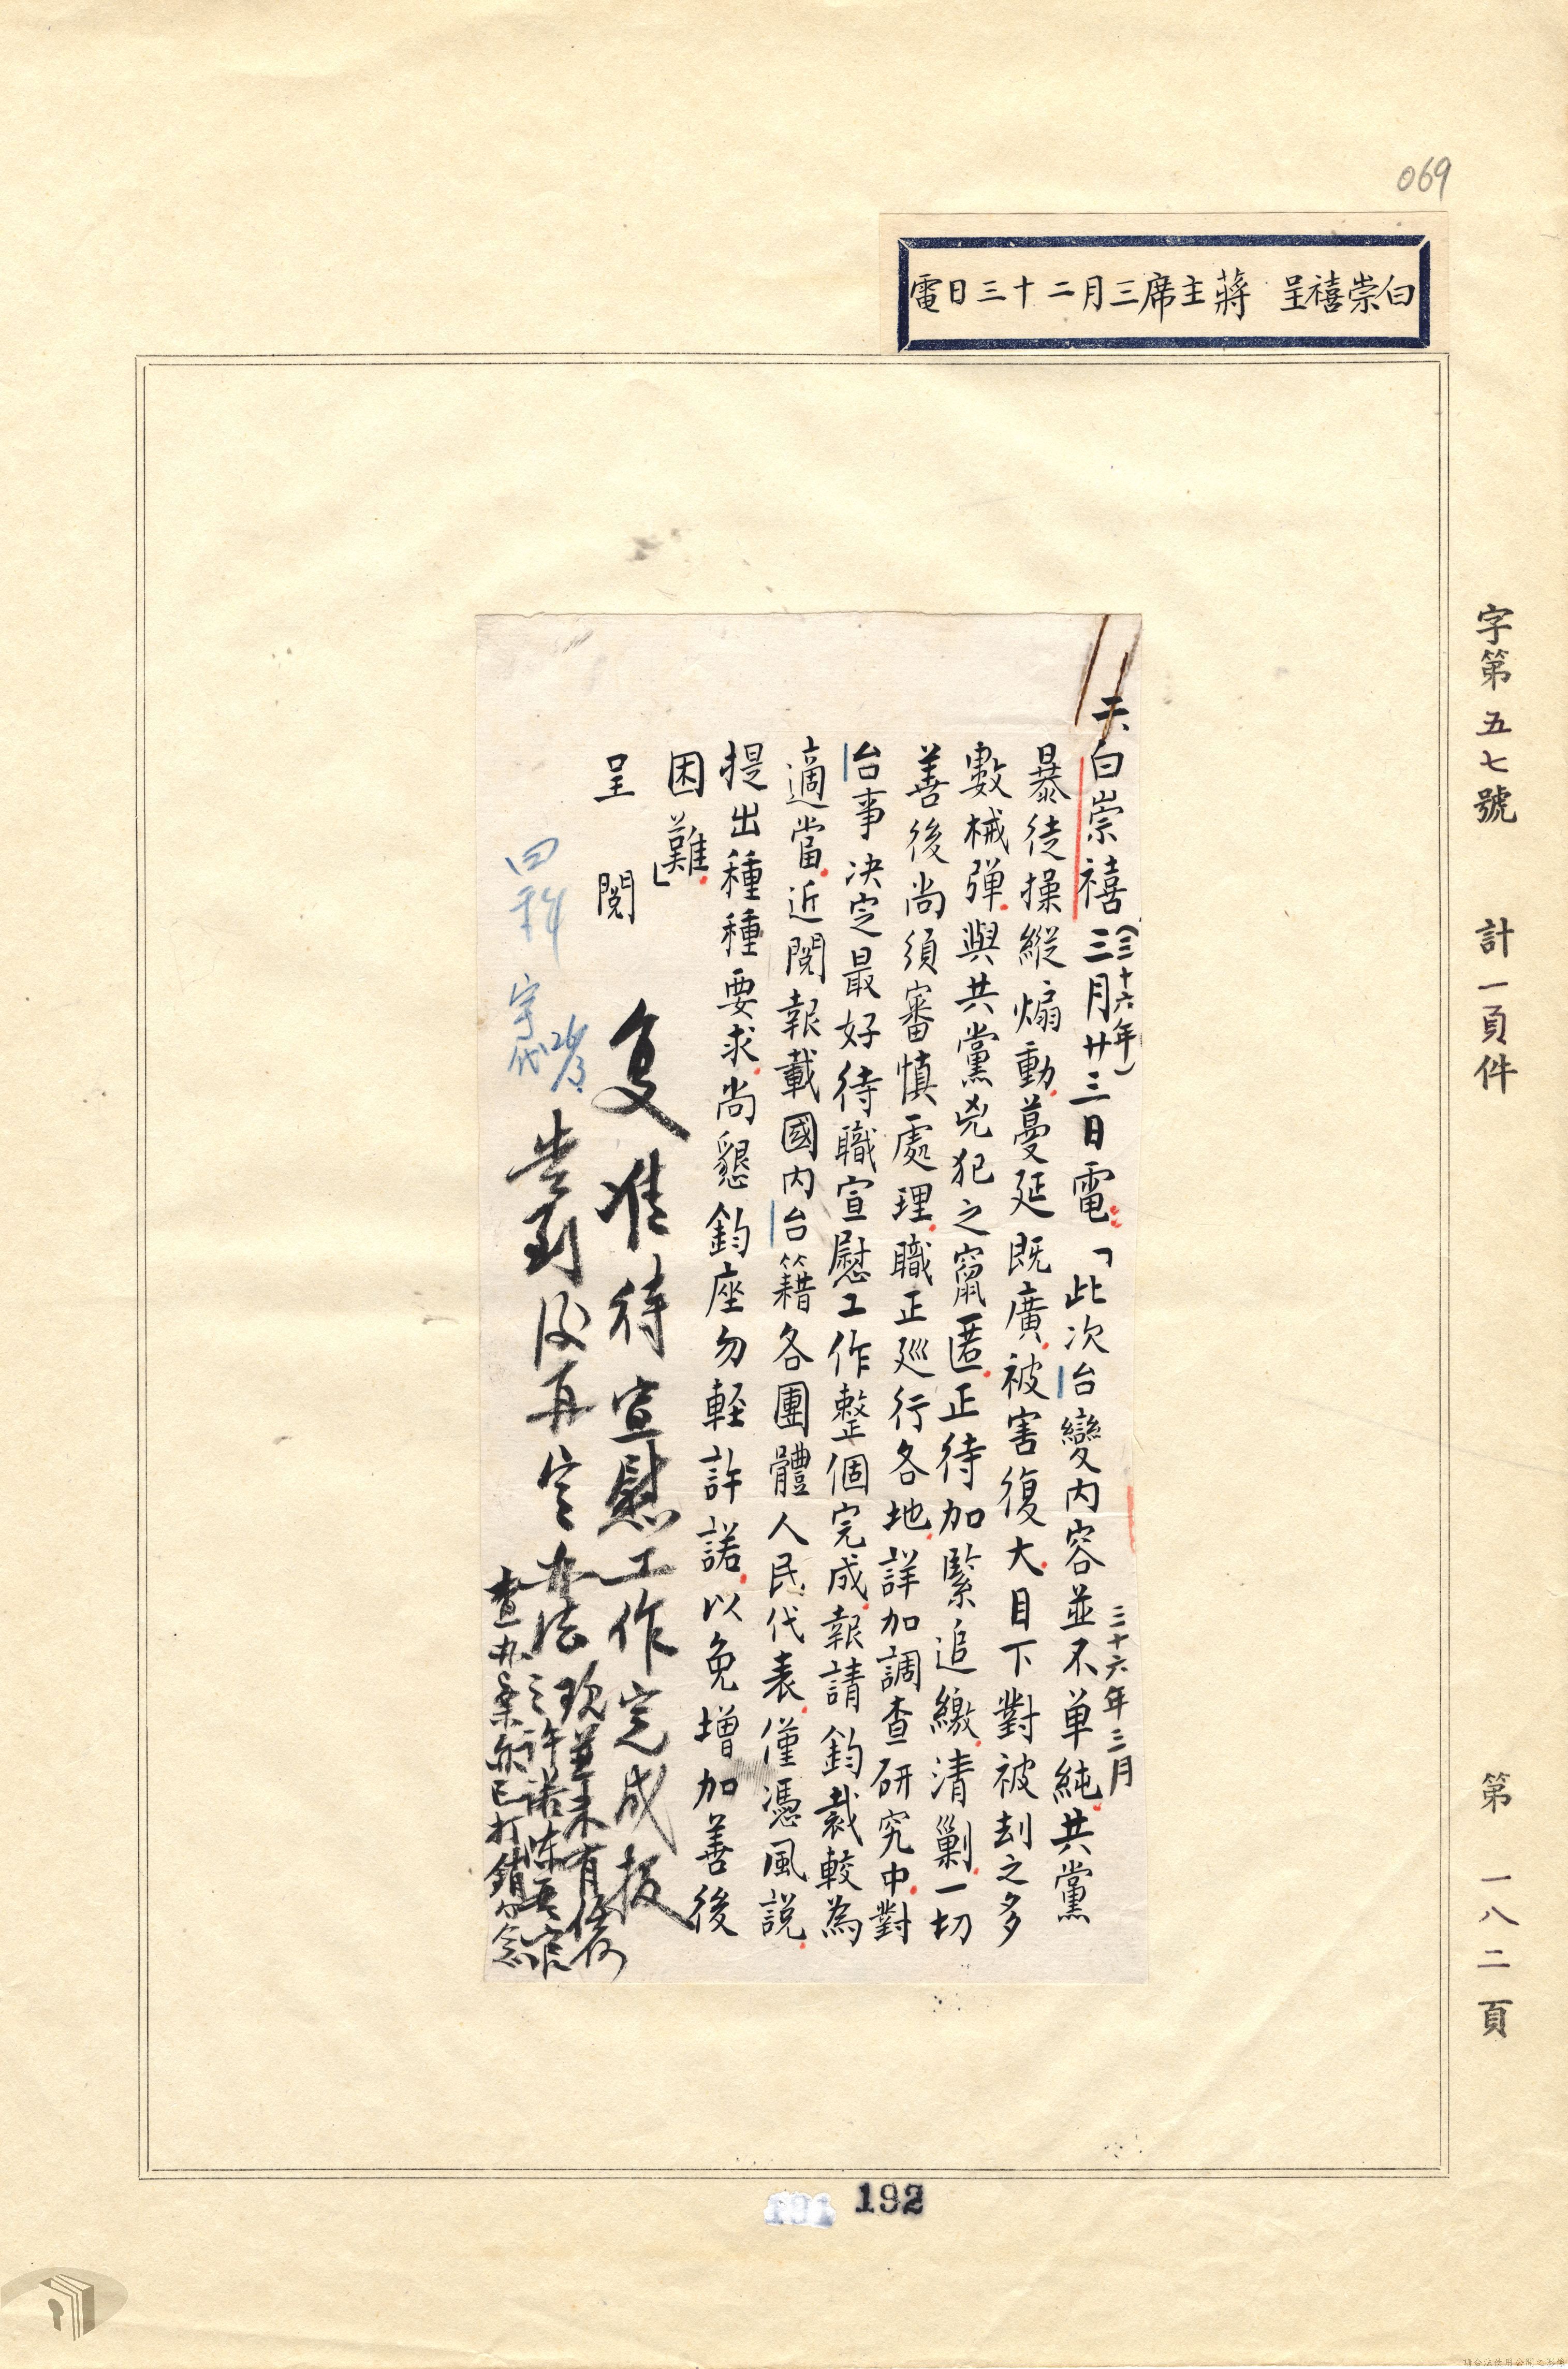 069
白崇禧呈 蔣主席三月二十三日電
字第五七號 計一頁件 第一八二頁
三十六年三月
天、白崇禧(三十六年)三月廿三日電：「此次台變內容並不單純，共黨
暴徒操縱煽動，蔓延既廣，被害復大，目下對被刦之多
數械彈，與共黨兇犯之竄匿，正待加緊追繳，清剿，一切
善後尚須審慎處理，職正巡行各地，詳加調查研究中，對
台事決定最好待職宣慰工作整個完成，報請鈞裁較為
適當，近閱報載國內台籍各團體人民代表，僅憑風說，
提出種種要求，尚懇鈞座勿輕許諾，以免增加善後
困難。」
呈 閱
复准待宣慰工作完成扳
到後再定办法現並未有任何
之許諾陳長官
查办案亦已打銷勿念
192